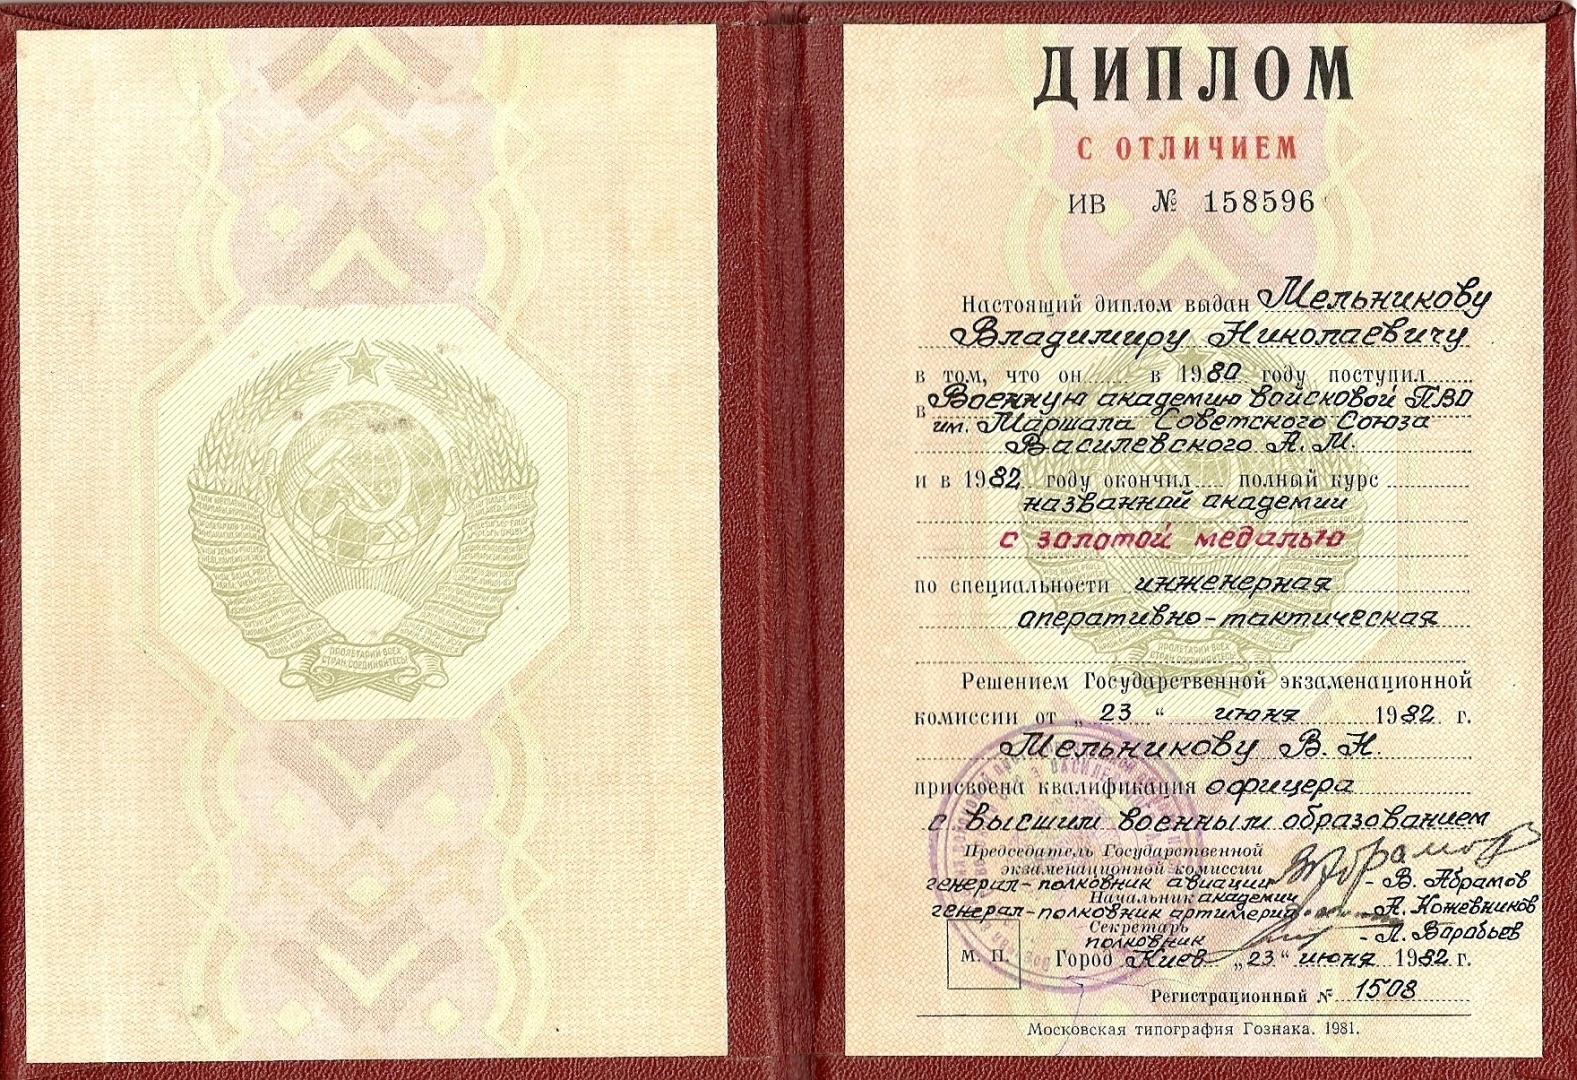 ПРОЛЕТАРИИ ВСЕХ
СТРАН, СОЕДИНЯЙТЕСЬ!
ДИПЛОМ
С ОТЛИЧИЕМ
ИВ № 158596
Настоящий диплом выдан Мельникову
Владимиру Николаевичу
в том, что он в 1980 году поступил
в Военную академию войсковой ПВО
им. Маршала Советского Союза
Василевского А. М.
и в 1982 году окончил полный курс
названной академии
с золотой медалью
по специальности инженерная
оперативно-тактическая
ПРОЛЕТАРИИ ВСЕХ
СТРАН, СОЕДИНЯЙТЕСЬ!
Решением Государственной экзаменационной
комиссии от „ 23 “ июня 1982 г.
Мельникову В. Н.
присвоена квалификация офицера
с высшим военным образованием
Председатель Государственной
экзаменационной комиссии
генерал-полковник авиации - В. Абрамов
Начальник академии
генерал-полковник артиллерии - А. Кожевников
Секретарь
полковник - Л. Варабьев
М. П. Город Киев „23“ июня 1982 г.
Регистрационный № 1508
Московская типография Гознака. 1981.